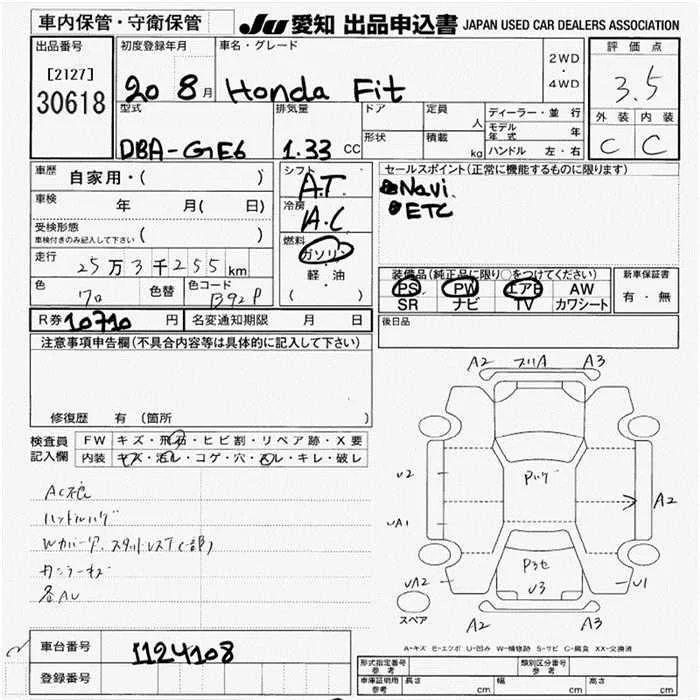 車内保管・守衛保管
JU 愛知 出品申込書 JAPAN USED CAR DEALERS ASSOCIATION
出品番号
[2127]
30618
初度登録年月
20 8 月
車名・グレード
Honda Fit
2WD
・
4WD
評価点
3.5
外装 内装
C C
型式
DBA-GE6
排気量
1.33 CC
ドア
形状
定員
人
積載
kg
ディーラー・並行
モデル年式 年
ハンドル 左・右
車歴
自家用・( )
車検
年 月( 日)
受検形態
車検付きのみ記入して下さい ( )
走行
25万3千255km
色
色替
色コード
B92P
シフト
A.T.
冷房
A.C
燃料
ガソリン
・
軽・油
( )
セールスポイント(正常に機能するものに限ります)
Navi
ETC
装備品(純正品に限り○をつけてください)
PS PW エアB AW
SR ナビ TV カワシート
新車保証書
有・無
R券 10710 円
名変通知期限 月 日
後日品
注意事項申告欄(不具合内容等は具体的に記入して下さい)
修復歴 有 (箇所
検査員記入欄
FW キズ・飛石・ヒビ割・リペア跡・X要
内装 キズ・汚レ・コゲ・穴・スレ・キレ・破レ
ハンドルハゲ
各AU
A2 A3
U2
UA1
A2
UA2
U1
U3
スペア
A2 A3
A-キズ E-エクボ U-凹み W-補修跡 S-サビ C-腐食 XX-交換済
車台番号
1124108
登録番号
形式指定番号
参考
類別区分番号
参考
車庫証明用
参考
長さ cm
幅 cm
高さ cm